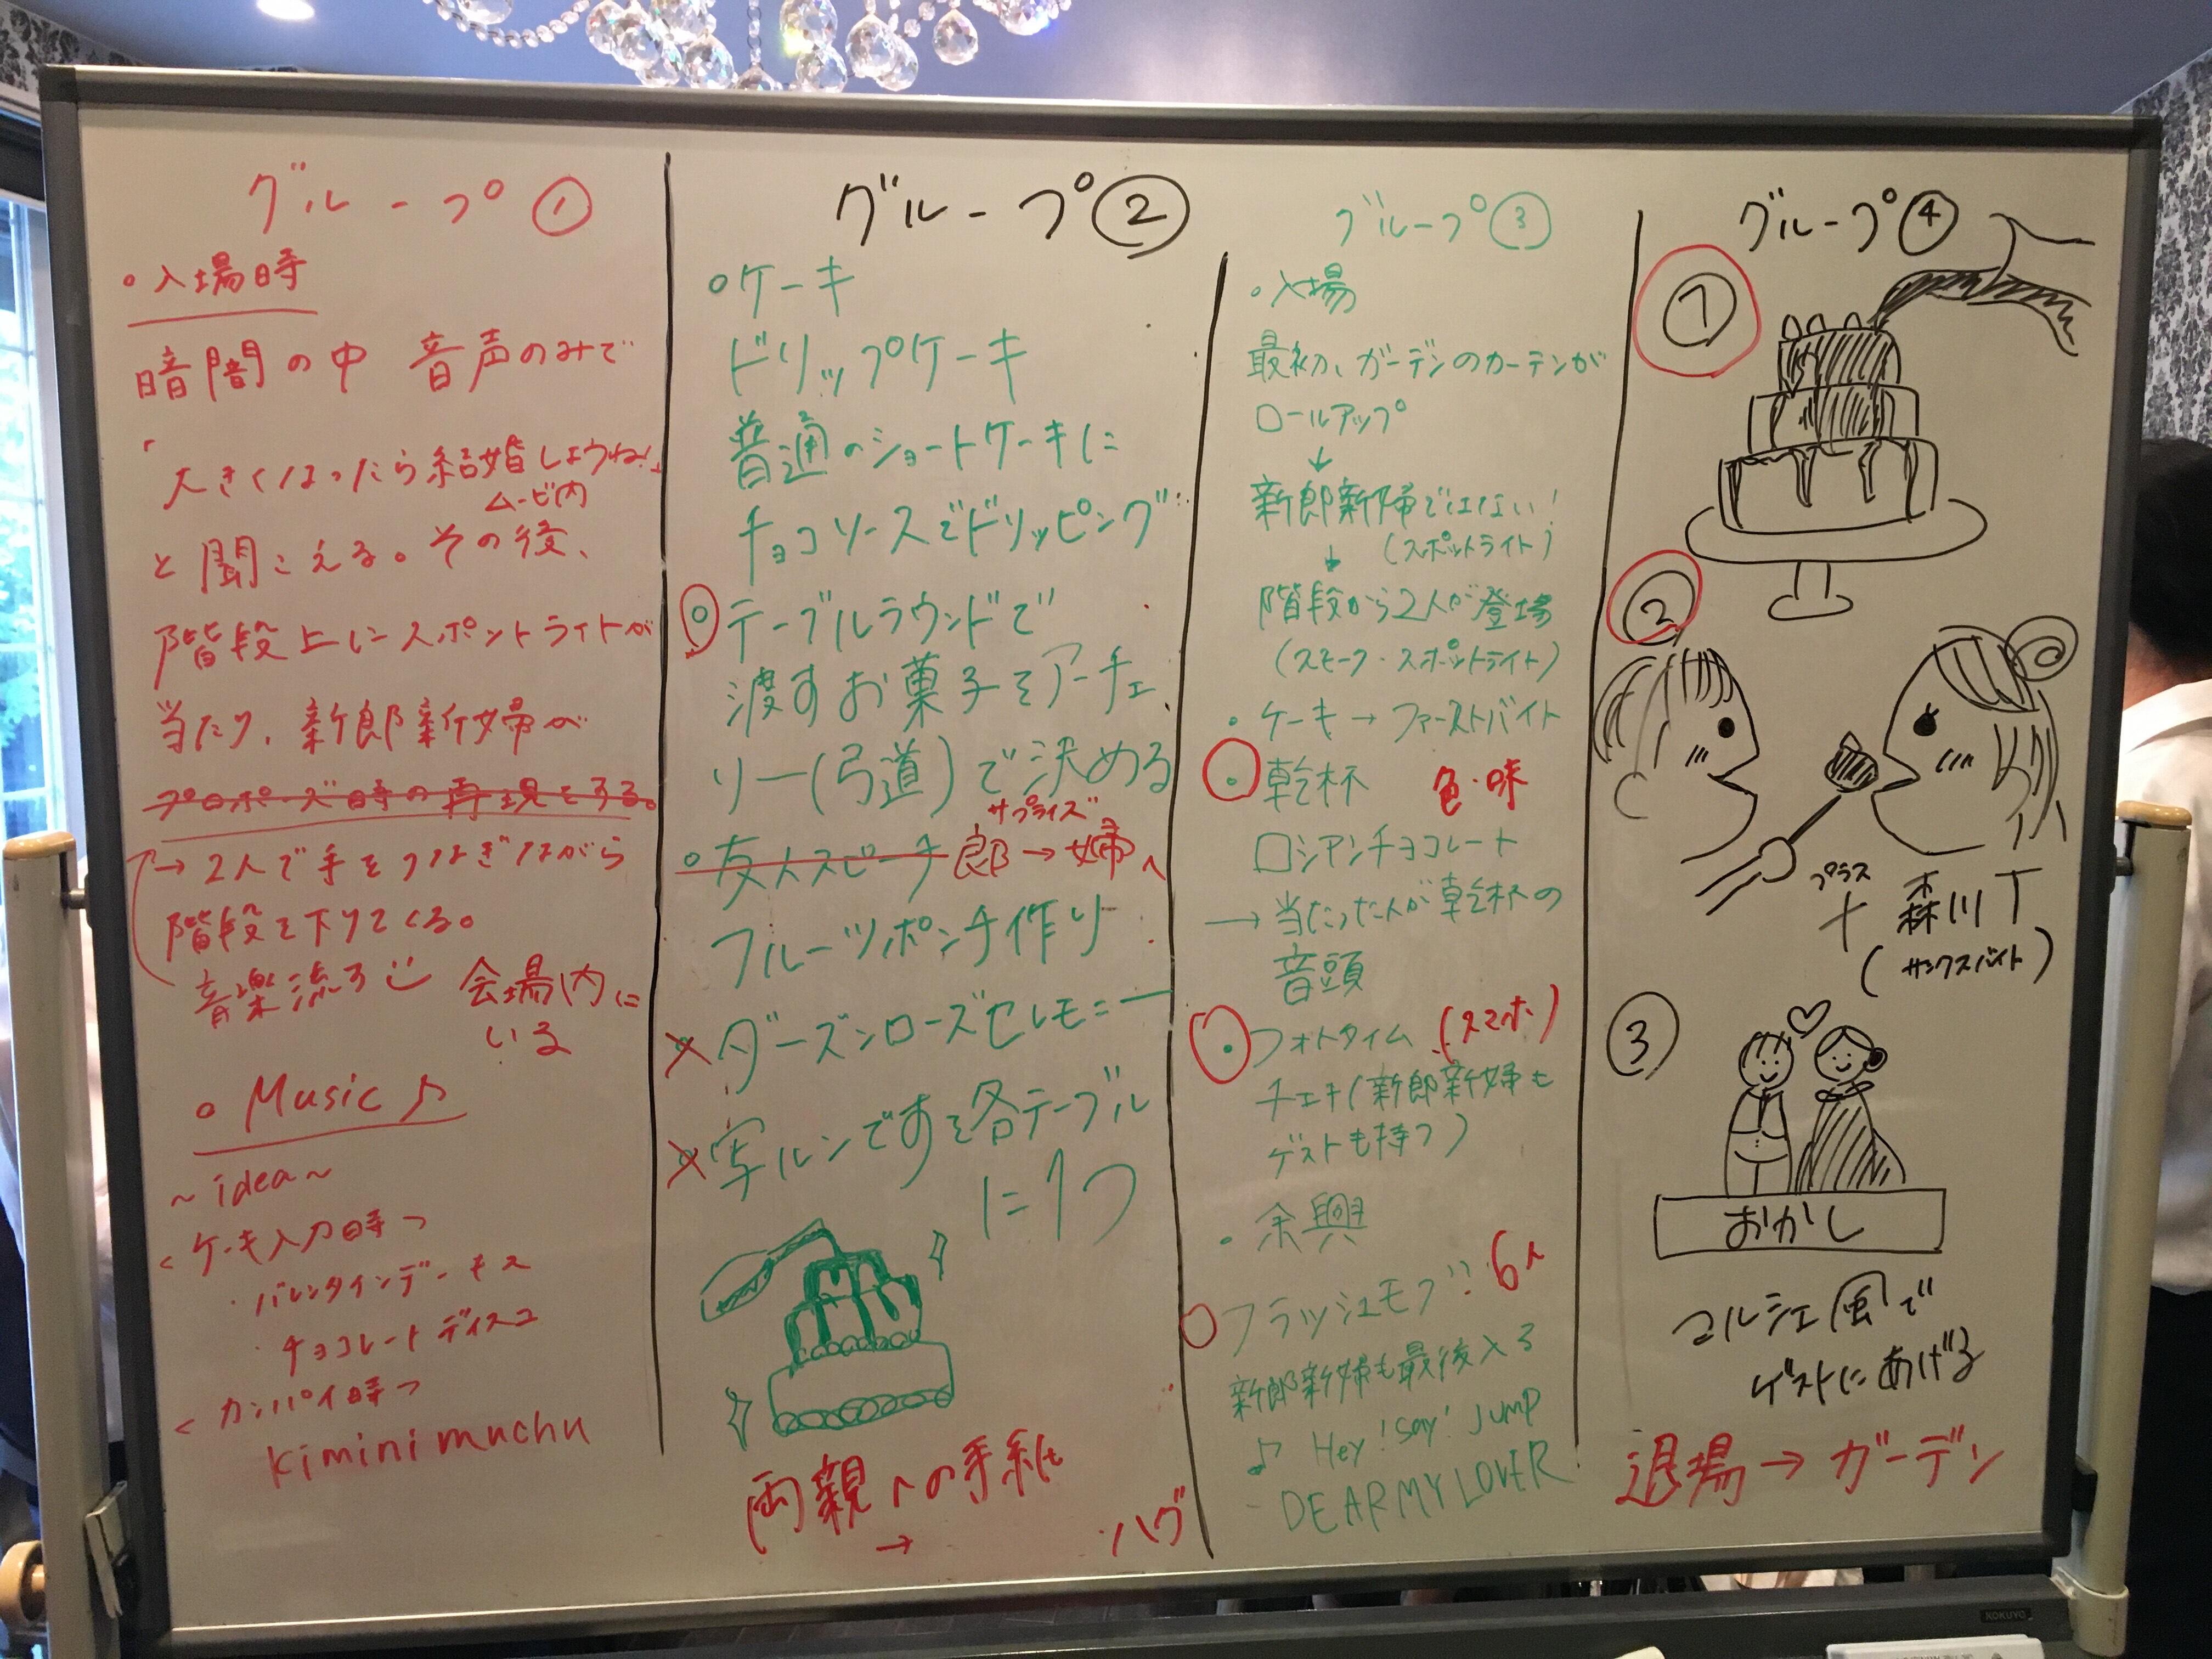 グループ①
・入場時
暗闇の中 音声のみで
「大きくなったら結婚しようね!」
ムービ内
と聞こえる。その後、
階段上にスポットライトが
当たり、新郎新婦が
プロポーズ時の再現をする。
→2人で手をつなぎながら
階段を下りてくる。
音楽流す 会場内に
いる
・Music♪
～idea～
<ケーキ入刀時>
・バレンタインデーキス
・チョコレートディスコ
<カンパイ時>
kimini muchu
グループ②
・ケーキ
ドリップケーキ
普通のショートケーキに
チョコソースでドリッピング
・テーブルラウンドで
渡すお菓子をアーチェ
リー(弓道)で決める
サプライズ
・友人スピーチ 郎→婦へ
フルーツポンチ作り
×ダーズンローズセレモニー
×写ルンですを各テーブル
に1つ
両親への手紙
→ ・ハグ
グループ③
・入場
最初、ガーデンのカーテンが
ロールアップ
↓
新郎新婦ではない!
(スポットライト)
↓
階段から2人が登場
(スモーク・スポットライト)
・ケーキ→ファーストバイト
・乾杯 色・味
ロシアンチョコレート
→当たった人が乾杯の
音頭
・フォトタイム (スマホ)
チェキ(新郎新婦も
ゲストも持つ)
・余興
フラッシュモブ!! 6人
新郎新婦も最後入る
♪ Hey!Say!Jump
- DEAR MY LOVER
グループ④
①
②
プラス
+ 森川T
(サンクスバイト)
③
おかし
マルシェ風で
ゲストにあげる
退場→ガーデン
KOKUYO